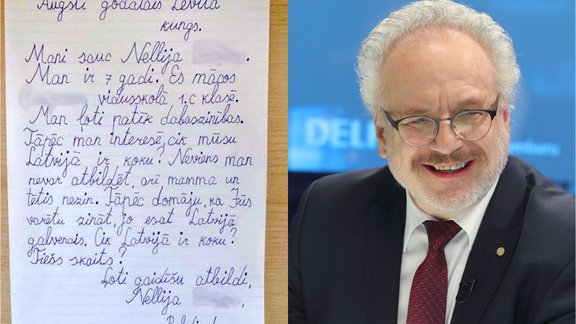 Augsti godātais Levita
kungs.
Mani sauc Nellija
Man ir 7 gadi. Es mācos
vidusskolā 1.c klasē.
Man ļoti patīk dabaszinības.
Tāpēc man interesē, cik mūsu
Latvijā ir koku? Neviens man
nevar atbildēt, arī mamma un
tētis nezin. Tāpēc domāju, ka Jūs
varētu zināt, jo esat Latvijā
galvenais. Cik Latvijā ir koku?
Tiešs skaits?
Ļoti gaidīšu atbildi,
Nellija
DELFI